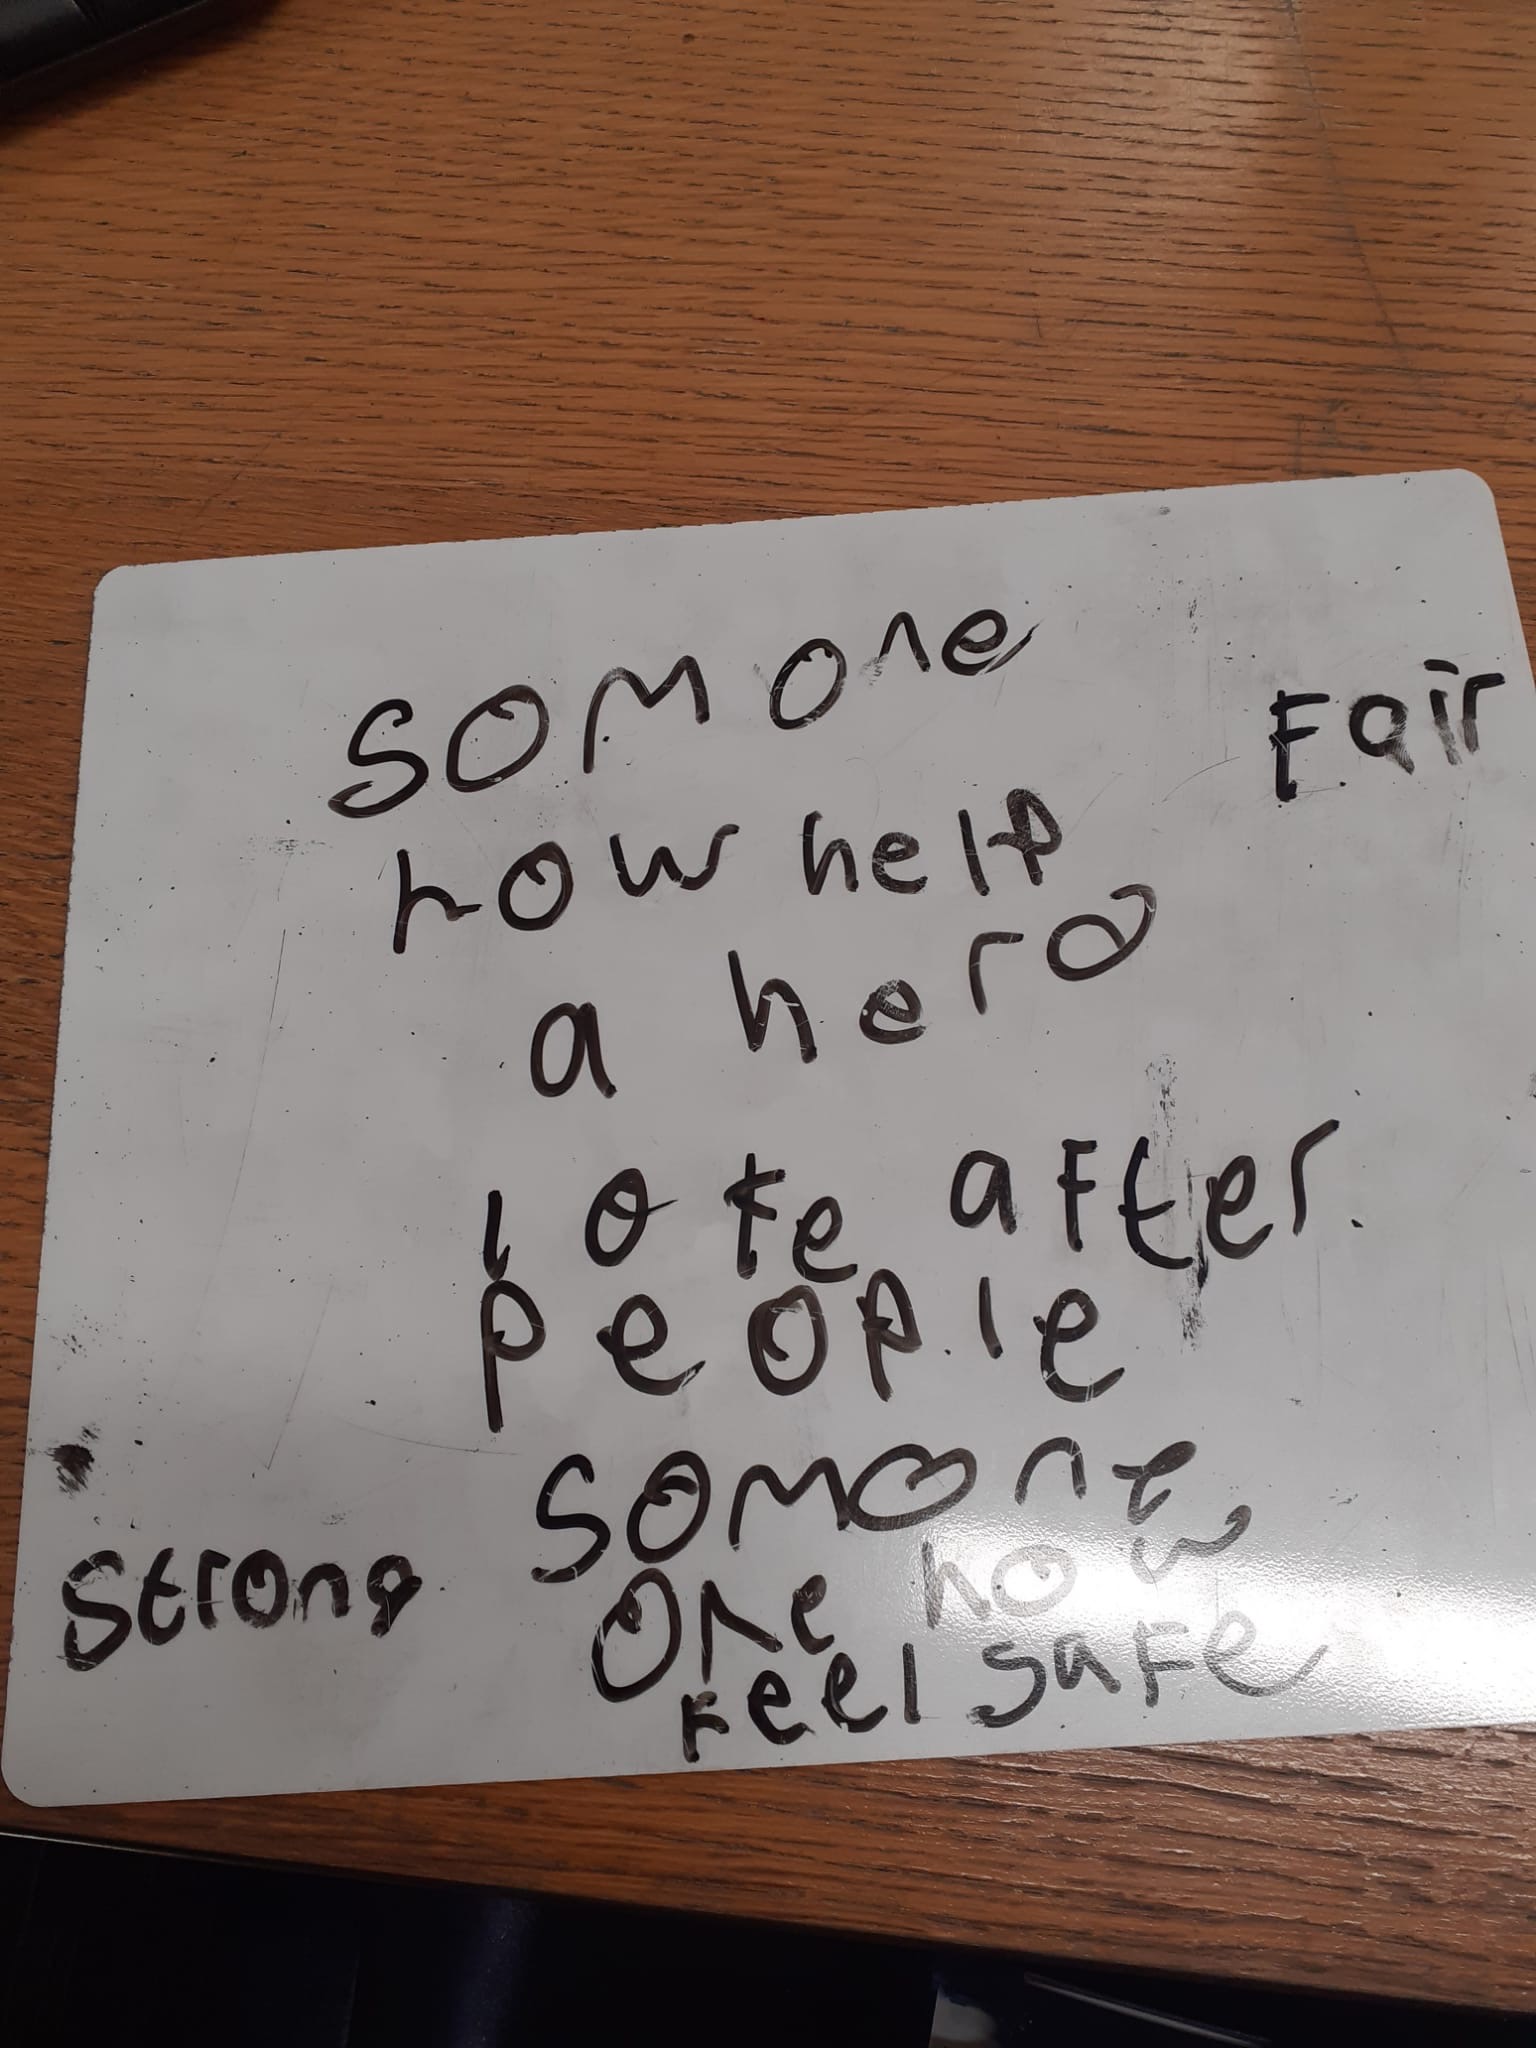 somone
Fair
how help
a hero
lote after.
people
somone
Strong
one how
feel safe